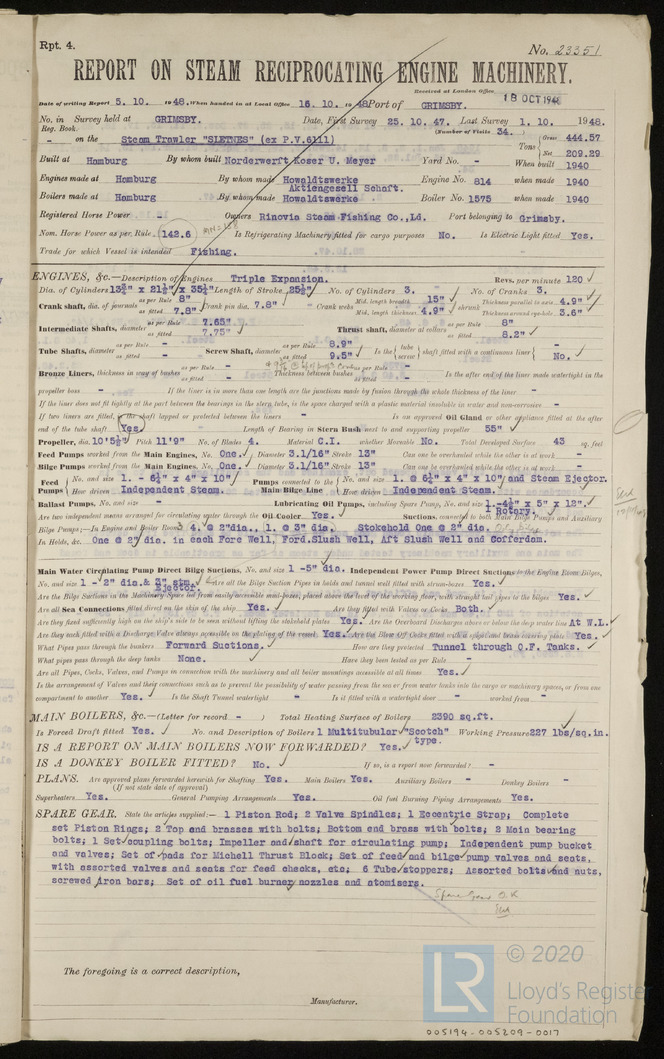 Rpt. 4.
No. 23351
REPORT ON STEAM RECIPROCATING ENGINE MACHINERY.
Received at London Office 18 OCT 1948
Date of writing Report 5. 10. 1948. When handed in at Local Office 16. 10. 1948 Port of GRIMSBY.
No. in Survey held at GRIMSBY. Date, First Survey 25. 10. 47. Last Survey 1. 10. 1948.
Reg. Book. (Number of Visits 34.)
- on the Steam Trawler "SLETNES" (ex P.V.6111) Tons Gross 444.57 Net 209.29
Built at Hamburg By whom built Norderwerft Koser U. Meyer Yard No. - When built 1940
Engines made at Hamburg By whom made Howaldtswerke Aktiengesell Schaft. Engine No. 814 when made 1940
Boilers made at Hamburg By whom made Howaldtswerke Boiler No. 1575 when made 1940
Registered Horse Power - Owners Rinovia Steam Fishing Co., Ld. Port belonging to Grimsby.
Nom. Horse Power as per Rule 142.6 Is Refrigerating Machinery fitted for cargo purposes No. Is Electric Light fitted Yes.
Trade for which Vessel is intended Fishing.
ENGINES, &c.—Description of Engines Triple Expansion. Revs. per minute 120
Dia. of Cylinders 13¾" x 21½" x 35¼" Length of Stroke 25½" No. of Cylinders 3. No. of Cranks 3.
Crank shaft, dia. of journals as per Rule 8" as fitted 7.8" Crank pin dia. 7.8" Crank webs Mid. length breadth 15" Mid. length thickness 4.9" shrunk Thickness parallel to axis 4.9" Thickness around eye-hole 3.6"
Intermediate Shafts, diameter as per Rule 7.65" as fitted 7.75" Thrust shaft, diameter at collars as per Rule 8" as fitted 8.2"
Tube Shafts, diameter as per Rule - as fitted - Screw Shaft, diameter as per Rule 8.9" as fitted 9.5" Is the tube screw shaft fitted with a continuous liner No.
Bronze Liners, thickness in way of bushes as per Rule - as fitted - Thickness between bushes as per Rule - as fitted - Is the after end of the liner made watertight in the
propeller boss - If the liner is in more than one length are the junctions made by fusion through the whole thickness of the liner -
If the liner does not fit tightly at the part between the bearings in the stern tube, is the space charged with a plastic material insoluble in water and non-corrosive -
If two liners are fitted, is the shaft lapped or protected between the liners - Is an approved Oil Gland or other appliance fitted at the after
end of the tube shaft Yes. Length of Bearing in Stern Bush next to and supporting propeller 55"
Propeller, dia. 10'5½" Pitch 11'9" No. of Blades 4. Material C.I. whether Moveable No. Total Developed Surface 43 sq. feet
Feed Pumps worked from the Main Engines, No. One. Diameter 3.1/16" Stroke 13" Can one be overhauled while the other is at work -
Bilge Pumps worked from the Main Engines, No. One. Diameter 3.1/16" Stroke 13" Can one be overhauled while the other is at work -
Feed Pumps No. and size 1. - 6¼" x 4" x 10" How driven Independent Steam. Pumps connected to the Main Bilge Line No. and size 1. @ 6¼" x 4" x 10" and Steam Ejector. How driven Independent Steam.
Ballast Pumps, No. and size - Lubricating Oil Pumps, including Spare Pump, No. and size 1.-4½" x 5" x 12". Rotary.
Are two independent means arranged for circulating water through the Oil Cooler Yes. Suctions, connected to both Main Bilge Pumps and Auxiliary
Bilge Pumps;—In Engine and Boiler Room 3 4. @ 2" dia., (1. @ 3" dia. Stokehold One @ 2" dia.
In Holds, &c. One @ 2" dia. in each Fore Well, Ford. Slush Well, Aft Slush Well and Cofferdam.
Main Water Circulating Pump Direct Bilge Suctions, No. and size 1 -5" dia. Independent Power Pump Direct Suctions to the Engine Room Bilges,
No. and size 1 -2" dia. & 3" stm. Ejector. Are all the Bilge Suction Pipes in holds and tunnel well fitted with strum-boxes Yes.
Are the Bilge Suctions in the Machinery Space led from easily accessible mud-boxes, placed above the level of the working floor, with straight tail pipes to the bilges Yes.
Are all Sea Connections fitted direct on the skin of the ship Yes. Are they fitted with Valves or Cocks Both.
Are they fixed sufficiently high on the ship's side to be seen without lifting the stokehold plates Yes. Are the Overboard Discharges above or below the deep water line At W.L.
Are they each fitted with a Discharge Valve always accessible on the plating of the vessel Yes. Are the Blow Off Cocks fitted with a spigot and brass covering plate Yes.
What Pipes pass through the bunkers Forward Suctions. How are they protected Tunnel through O.F. Tanks.
What pipes pass through the deep tanks None. Have they been tested as per Rule -
Are all Pipes, Cocks, Valves, and Pumps in connection with the machinery and all boiler mountings accessible at all times Yes.
Is the arrangement of Valves and their connections such as to prevent the possibility of water passing from the sea or from water tanks into the cargo or machinery spaces, or from one
compartment to another Yes. Is the Shaft Tunnel watertight - Is it fitted with a watertight door - worked from -
MAIN BOILERS, &c.—(Letter for record - ) Total Heating Surface of Boilers 2390 sq.ft.
Is Forced Draft fitted Yes. No. and Description of Boilers 1 Multitubular "Scotch" type. Working Pressure 227 lbs/sq.in.
IS A REPORT ON MAIN BOILERS NOW FORWARDED? Yes.
IS A DONKEY BOILER FITTED? No. If so, is a report now forwarded? -
PLANS. Are approved plans forwarded herewith for Shafting Yes. Main Boilers Yes. Auxiliary Boilers - Donkey Boilers -
(If not state date of approval)
Superheaters Yes. General Pumping Arrangements Yes. Oil fuel Burning Piping Arrangements Yes.
SPARE GEAR. State the articles supplied:— 1 Piston Rod; 2 Valve Spindles; 1 Eccentric Strap; Complete
set Piston Rings; 2 Top end brasses with bolts; Bottom end brass with bolts; 2 Main bearing
bolts; 1 Set coupling bolts; Impeller and shaft for circulating pump; Independent pump bucket
and valves; Set of pads for Michell Thrust Block; Set of feed and bilge pump valves and seats,
with assorted valves and seats for feed checks, etc; 6 Tube stoppers; Assorted bolts and nuts,
screwed iron bars; Set of oil fuel burner nozzles and atomisers.
Spare Gear O.K
The foregoing is a correct description,
Manufacturer.
LR © 2020
Lloyd's Register
Foundation
005194-005209-0017